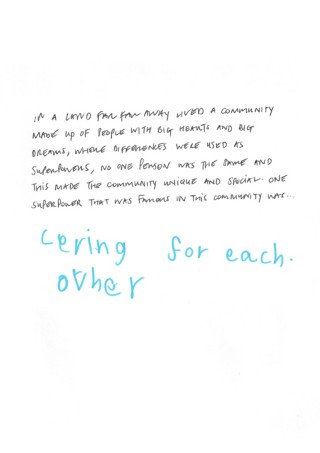 IN A LAND FAR FAR AWAY LIVED A COMMUNITY
MADE UP OF PEOPLE WITH BIG HEARTS AND BIG
DREAMS, WHERE DIFFERENCES WERE USED AS
SUPERPOWERS, NO ONE PERSON WAS THE SAME AND
THIS MADE THE COMMUNITY UNIQUE AND SPECIAL. ONE
SUPERPOWER THAT WAS FAMOUS IN THIS COMMUNITY WAS...
cering for each.
other